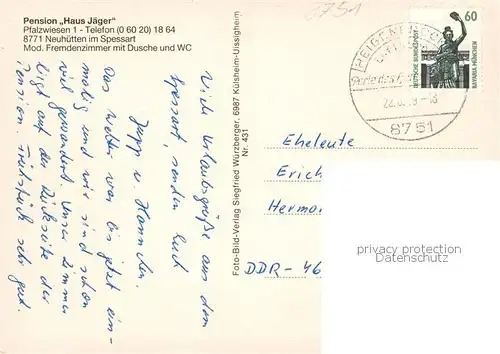 Pension „Haus Jäger“
Pfalzwiesen 1 - Telefon (0 60 20) 18 64
8771 Neuhütten im Spessart
Mod. Fremdenzimmer mit Dusche und WC
Viele Urlaubsgrüße aus dem
Spessart, senden Euch
Jupp u. Hannchen.
Das Wetter war bis jetzt ein-
malig und wir sind schon
viel gewandert. Unser Zimmer
liegt auf der Rückseite der
Pension. Frühstück sehr gut.
Foto-Bild-Verlag Siegfried Würzberger, 6987 Külsheim-Uissigheim
Nr. 431
8751
8751
60
DEUTSCHE BUNDESPOST
BAVARIA MÜNCHEN
Eheleute
Erich
Herma
DDR-46
privacy protection
Datenschutz